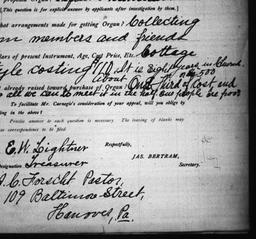 [This question is for explicit answer by applicants after investigation by them.]
What arrangements made for getting Organ? Collecting
from members and friends
of present instrument, Age, Cost Price, Etc. Cottage
style costing It is eight years in Church.
about 500
already raised towards purchase of Organ? One Third of Cost, and
all we can to meet it as the best. Our people are poor
To facilitate Mr. Carnegie's consideration of your appeal, will you be obliging
in the above!
Precise answer to each question is necessary. The leaving of blanks may
correspondence to be filed
Respectfully,
E. W. Lightner
JAS. BERTRAM,
Designation Treasurer
Secretary.
A. C. Forscht Pastor,
109 Baltimore Street,
Hanover, Pa.